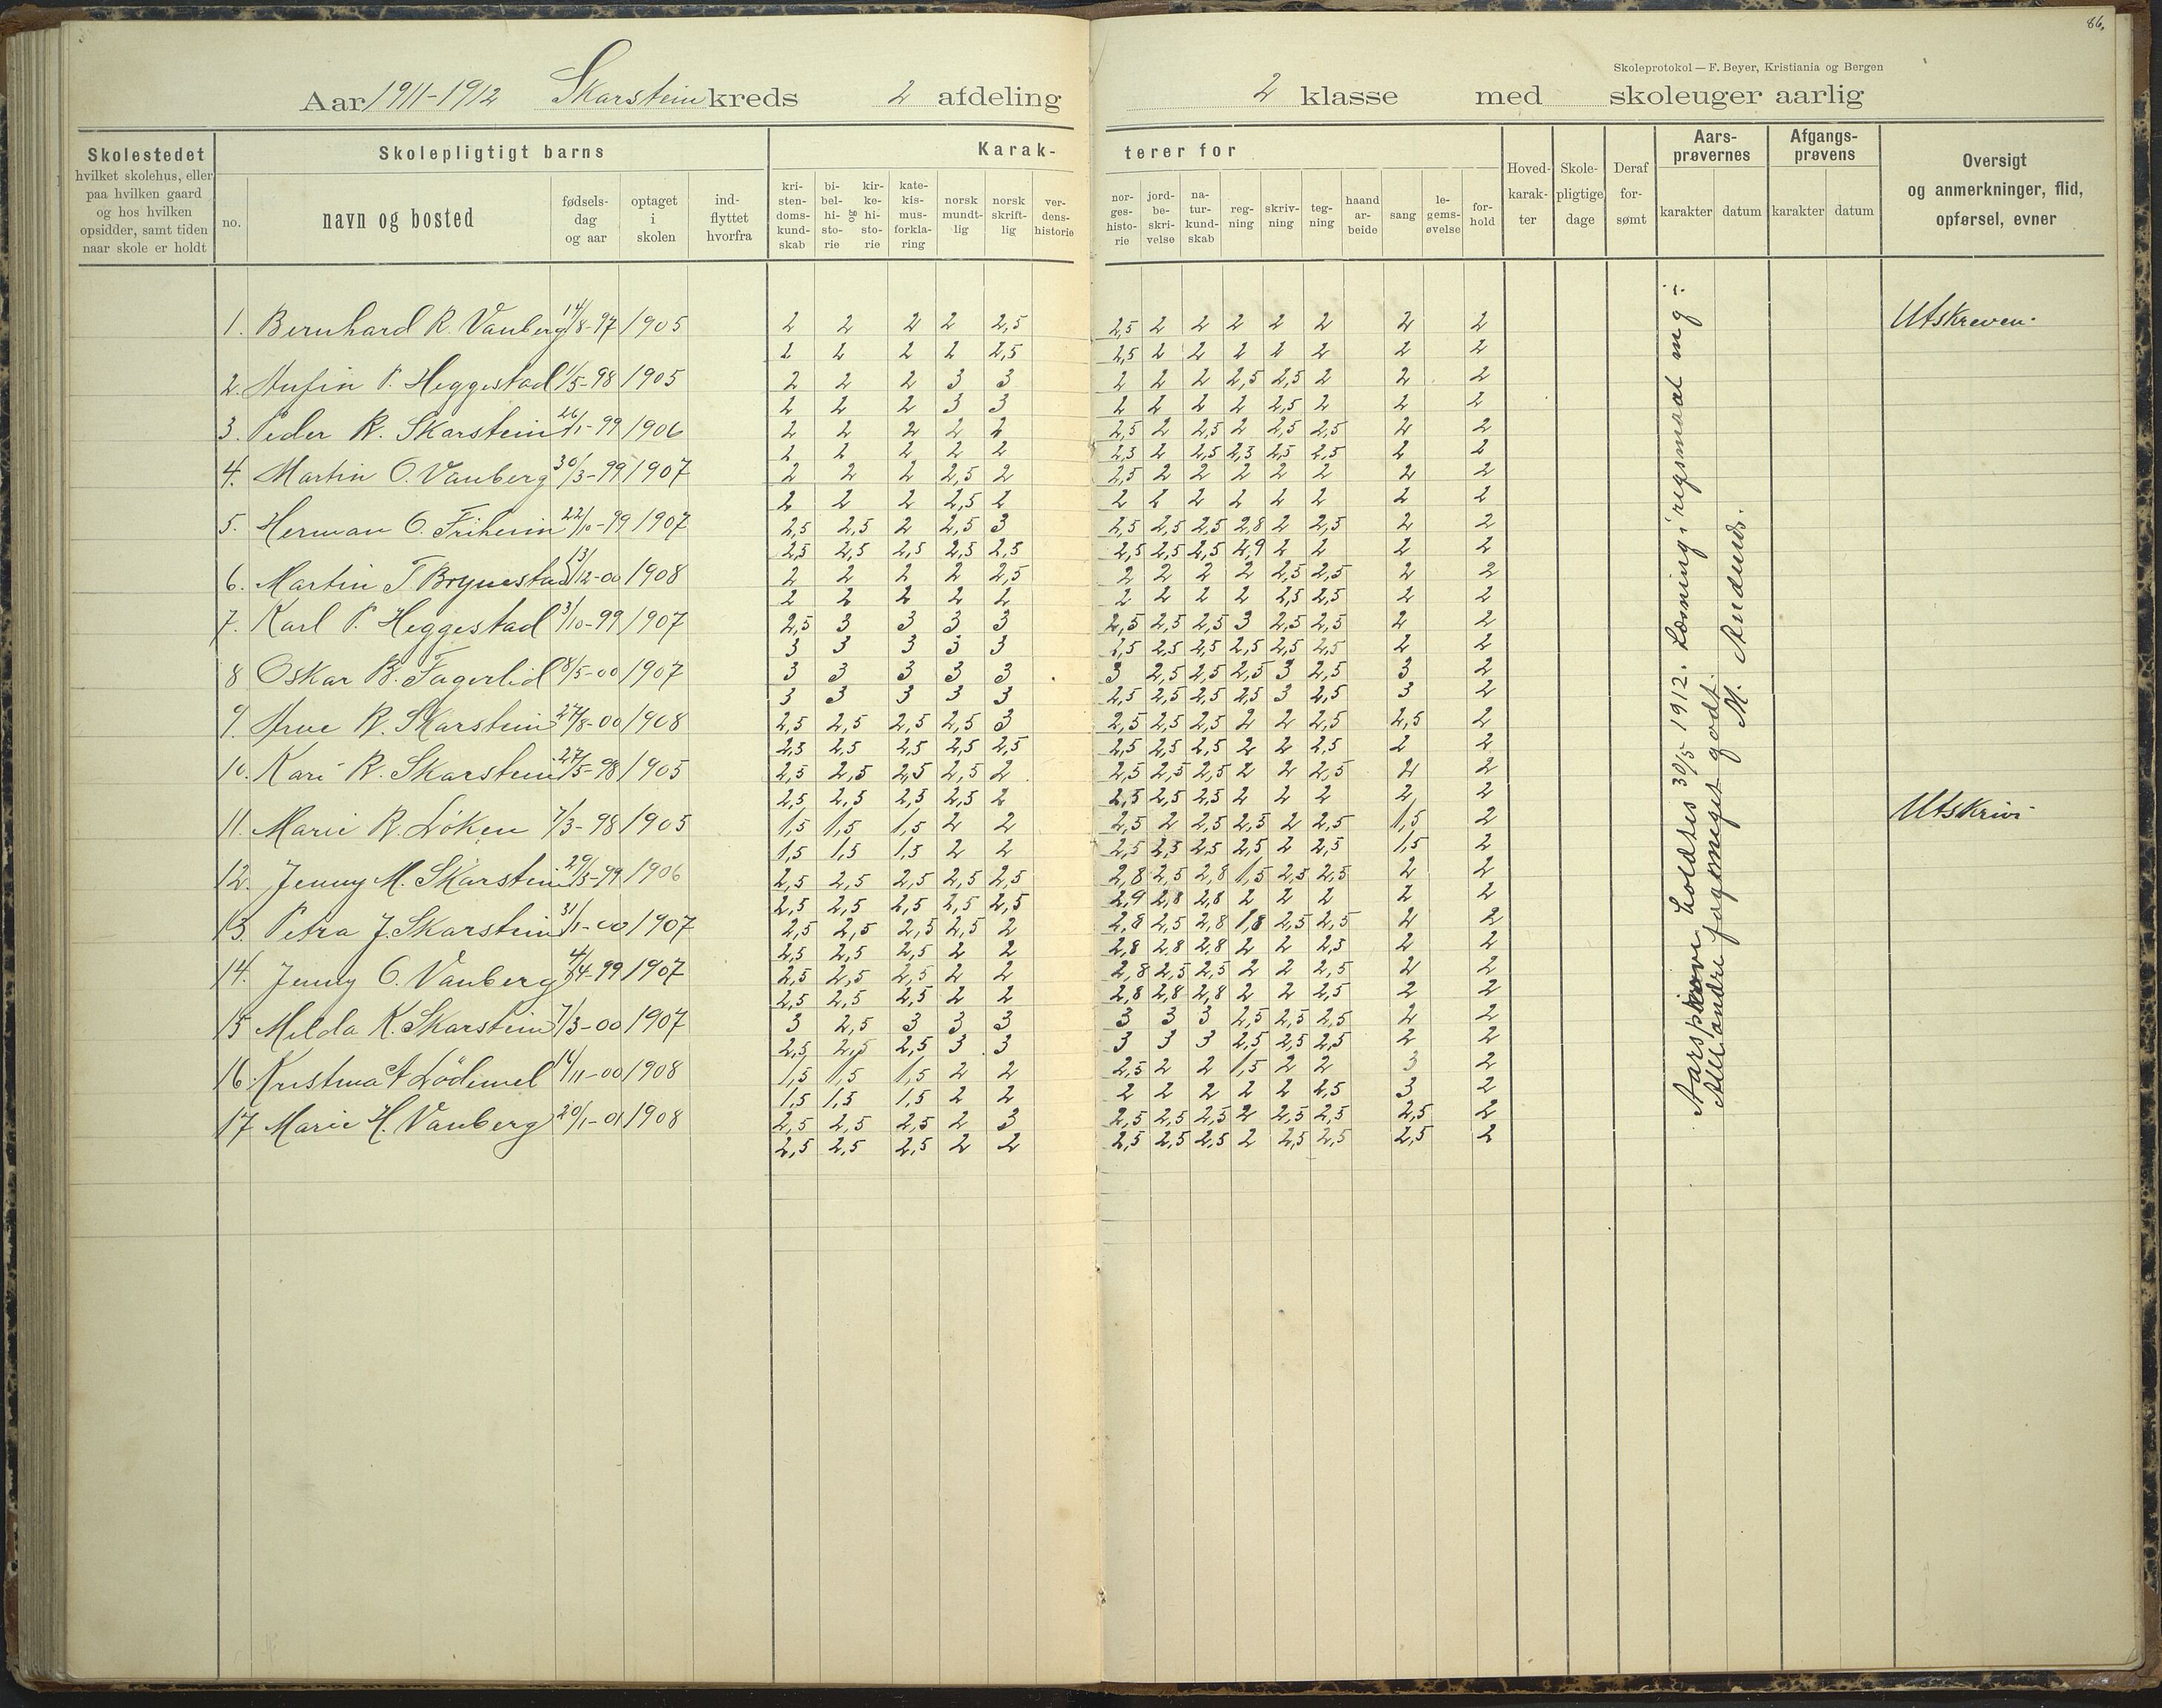 86.
Skoleprotokol — F. Beyer, Kristiania og Bergen
Aar 1911-1912 Skarstein kreds 2 afdeling 2 klasse med skoleuger aarlig
Skolestedet
hvilket skolehus, eller
paa hvilken gaard
og hos hvilken
opsidder, samt tiden
naar skole er holdt
Skolepligtigt barns
no.
navn og bosted
fødsels-
dag
og aar
optaget
i
skolen
ind-
flyttet
hvorfra
Karak-
kri-
sten-
doms-
kund-
skab
bi-
bel-
hi-
sto-
rie
og
kir-
ke-
hi-
sto-
rie
kate-
kis-
mus-
forkla-
ring
norsk
mundt-
lig
norsk
skrift-
lig
ver-
dens-
historie
terer for
nor-
ges-
histo-
rie
jord-
be-
skri-
velse
na-
tur-
kund-
skab
reg-
ning
skriv-
ning
teg-
ning
haand
ar-
beide
sang
le-
gems-
øvelse
for-
hold
Hoved-
karak-
ter
Skole-
pligtige
dage
Deraf
for-
sømt
Aars-
prøvernes
karakter datum
Afgangs-
prøvens
karakter datum
Oversigt
og anmerkninger, flid,
opførsel, evner
1. Bernhard R. Vanberg 14/8-97 1905 2 2 2 2 2,5 2,5 2 2 2 2 2 2 2 Utskreven.
2 2 2 2 2,5 2,5 2 2 2 2 2 2 2
2. P. Heggestad 1/5-98 1905 2 2 2 3 3 2 2 2 2,5 2,5 2 2 2
2 2 2 3 3 2 2 2 2 2,5 2 2 2
3. Peder R. Skarstein 26/1-99 1906 2 2 2 2 2 2,5 2 2,5 2 2,5 2,5 2 2
2 2 2 2 2 2,5 2 2,5 2,3 2,5 2,5 2 2
4. Martin O. Vanberg 30/3-99 1907 2 2 2 2,5 2 2,5 2 2 2 2 2 2 2
2 2 2 2,5 2 2 2 2 2 2 2 2 2
5. Herman O. Friheim 22/10-99 1907 2,5 2,5 2 2,5 3 2,5 2,5 2,5 2,8 2 2,5 2 2
2,5 2,5 2,5 2,5 2,5 2,5 2,5 2,5 2,9 2 2 2 2
6. Martin T Brynestad 13/12-00 1908 2 2 2 2 2,5 2 2 2 2 2,5 2,5 2 2
2 2 2 2 2 2 2 2 2 2,5 2,5 2 2
7. Karl P. Heggestad 3/10-99 1907 2,5 3 3 3 3 2,5 2,5 2,5 3 2,5 2,5 2 2
3 3 3 3 3 2,5 2,5 2,5 2,5 2,5 2,5 2 2
8 Oskar B. Fagerlid 8/5-00 1907 3 3 3 3 3 3 2,5 2,5 2,5 3 2,5 3 2
3 3 3 3 3 2,5 2,5 2,5 2,5 3 2,5 3 2
9. Arne R. Skarstein 27/8-00 1908 2,5 2,5 2,5 2,5 3 2,5 2,5 2,5 2 2 2,5 2,5 2
2,5 2,5 2,5 2,5 2,5 2,5 2,5 2,5 2 2 2,5 2 2
10. Kari R. Skarstein 27/5-98 1905 2,5 2,5 2,5 2,5 2 2,5 2,5 2,5 2 2 2,5 2 2
2,5 2,5 2,5 2,5 2 2,5 2,5 2,5 2 2 2 2 2
11. Marie R. Löken 7/3-98 1905 1,5 1,5 1,5 2 2 2,5 2 2,5 2,5 2 2,5 1,5 2 Utskrivi
1,5 1,5 1,5 2 2 2,5 2,5 2,5 2,5 2 2,5 1,5 2
12. Jenny M. Skarstein 29/3-99 1906 2,5 2,5 2,5 2,5 2,5 2,8 2,5 2,8 1,5 2,5 2,5 2 2
2,5 2,5 2,5 2,5 2,5 2,9 2,8 2,8 2 2 2 2 2
13. Petra J. Skarstein 31/1-00 1907 2,5 2,5 2,5 2,5 2 2,8 2,5 2,8 1,8 2,5 2,5 2 2
2,5 2,5 2,5 2 2 2,8 2,8 2,8 2 2 2,5 2 2
14. Jenny O. Vanberg 4/4-99 1907 2,5 2,5 2,5 2 2 2,8 2,5 2,5 2 2 2,5 2 2
2,5 2,5 2,5 2 2 2,8 2,8 2,8 2 2 2,5 2 2
15 Milda K. Skarstein 7/3-00 1907 3 2,5 3 3 3 3 3 3 2,5 2,5 2,5 2 2
2,5 2,5 2,5 3 3 3 3 3 2,5 2,5 2,5 2 2
16. Kristina A Lödemel 16/11-00 1908 1,5 1,5 1,5 2 2 2,5 2 2 1,5 2 2 3 2
1,5 1,5 1,5 2 2 2 2 2 2 2 2,5 3 2
17 Marie H. Vanberg 20/1-01 1908 2,5 2,5 2,5 2 3 2,5 2,5 2,5 2 2,5 2,5 2,5 2
2,5 2,5 2,5 2 2 2,5 2,5 2,5 2 2,5 2,5 2,5 2
Aarsprøve holdtes 30/5 1912. Læsning i regsmaal mg ÷
Alle andre fag meget godt.
M.